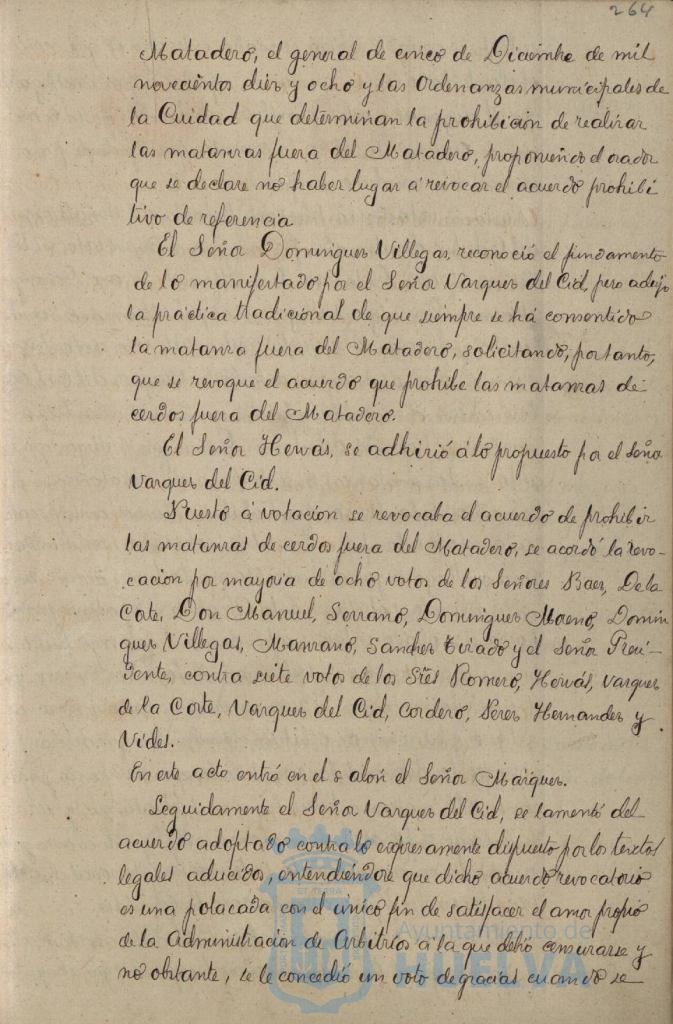 264
Matadero, el general de cinco de Diciembre de mil
novecientos diez y ocho y las Ordenanzas municipales de
la Cuidad que determinan la prohibicion de realizar
las matanzas fuera del Matadero, proponiendo el orador
que se declare no haber lugar a revocar el acuerdo prohibi
tivo de referencia
El Señor Dominguez Villegas, reconoció el fundamento
de lo manifestado por el Señor Vazquez del Cid, pero adujo
la práctica tradicional de que siempre se há consentido
la matanza fuera del Matadero, solicitando, por tanto,
que se revoque el acuerdo que prohibe las matanzas de
cerdos fuera del Matadero.
El Señor Hervás, se adhirió á lo propuesto por el Señor
Vazquez del Cid.
Puesto á votacion se revocaba el acuerdo de prohibir
las matanzas de cerdos fuera del Matadero, se acordó la revo-
cación por mayoria de ocho votos de los Señores Baez, De la
Corte, Don Manuel, Serrano, Dominguez Moreno, Domin
guez Villegas, Manzano, Sanchez Tirado y el Señor Presi-
dente, contra siete votos de los Sres Romero, Hervás, Vazquez
de la Corte, Vazquez del Cid, Cordero, Perez Hernandez y
Vides.
En este acto entró en el salon el Señor Marquez.
Seguidamente el Señor Vazquez del Cid, se lamentó del
acuerdo adoptado contra lo expresamente dispuesto por los textos
legales aducidos, entendiéndose que dicho acuerdo revocatorio
es una polacada con el único fin de satisfacer el amor propio
de la Administracion de Arbitrios á la que debió censurarse y
no obstante, se le concedió un voto de gracias cuando se
Ayuntamiento de
HUELVA